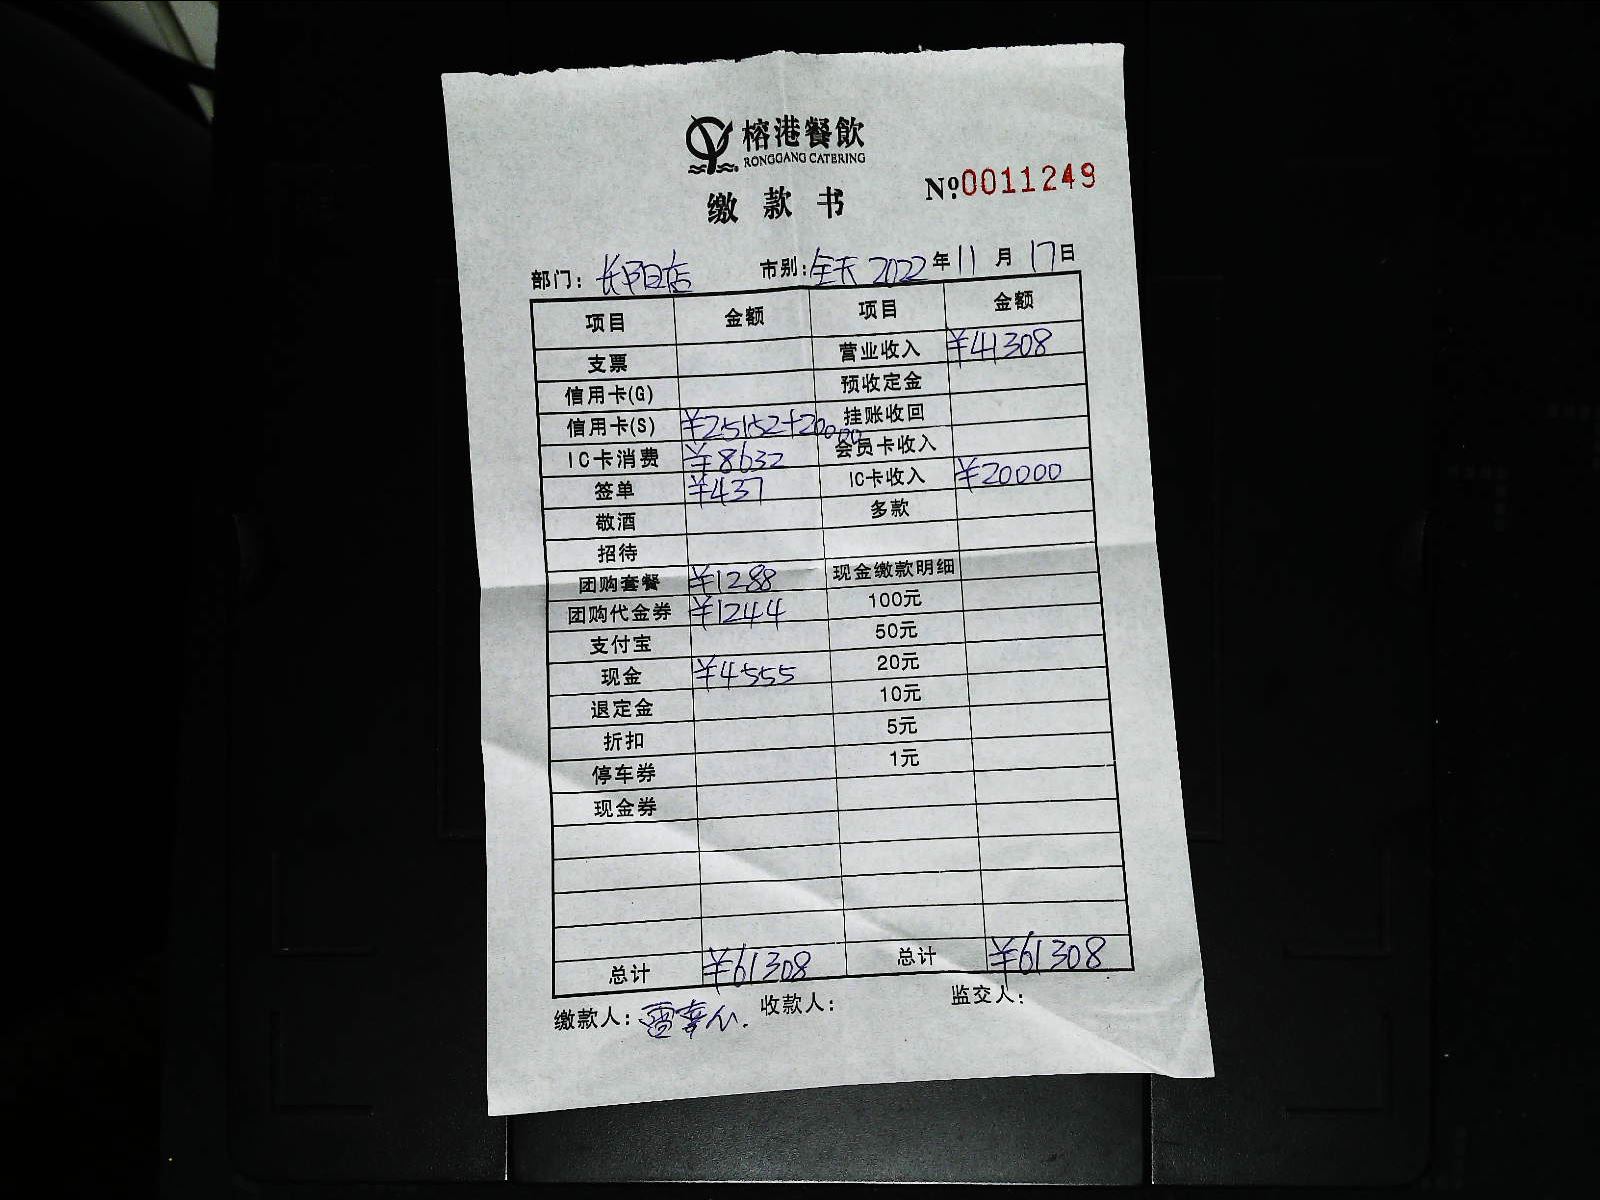 榕港餐飲
RONGGANG CATERING
缴款书
Nº.0011249
部门：长阳店 市别：全天 2022年11月17日
项目 金额 项目 金额
支票 营业收入 ¥41308
信用卡(G) 预收定金
信用卡(S) ¥25152+20000 挂账收回
IC卡消费 ¥8632 会员卡收入
签单 ¥437 IC卡收入 ¥20000
敬酒 多款
招待
团购套餐 ¥1288 现金缴款明细
团购代金券 ¥1244 100元
支付宝 50元
现金 ¥4555 20元
退定金 10元
折扣 5元
停车券 1元
现金券
总计 ¥61308 总计 ¥61308
缴款人： 收款人： 监交人：